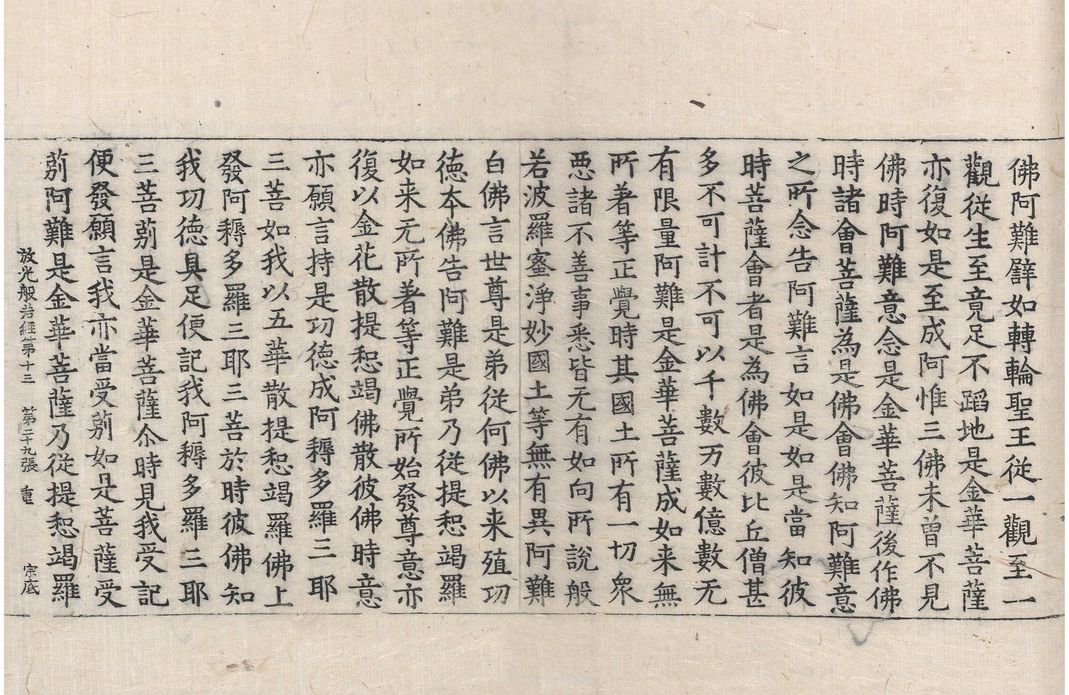 佛阿難譬如轉輪聖王從一觀至一
觀從生至竟足不蹈地是金華菩薩
亦復如是至成阿惟三佛未曾不見
佛時阿難意念是金華菩薩後作佛
時諸會菩薩為是佛會佛知阿難意
之所念告阿難言如是如是當知彼
時菩薩會者是為佛會彼比丘僧甚
多不可計不可以千數万數億數无
有限量阿難是金華菩薩成如来無
所著等正覺時其國土所有一切衆
惡諸不善事悉皆无有如向所說般
若波羅蜜淨妙國土等無有異阿難
白佛言世尊是弟從何佛以来殖功
德本佛告阿難是弟乃從提惒竭羅
如来无所著等正覺所始發尊意亦
復以金花散提惒竭佛散彼佛時意
亦願言持是功德成阿耨多羅三耶
三菩如我以五華散提惒竭羅佛上
發阿耨多羅三耶三菩於時彼佛知
我功德具足便記我阿耨多羅三耶
三菩莂是金華菩薩尒時見我受記
便發願言我亦當受莂如是菩薩受
放光般若經第十三 第二十九張 重 宗底
莂阿難是金華菩薩乃從提惒竭羅